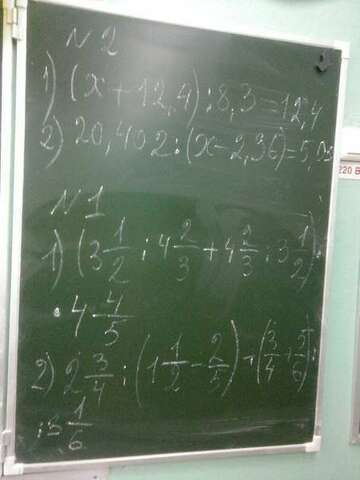 N2
1) (x+12,4):8,3=12,4
2) 20,402:(x-2,36)=5,
N1
1) (3 1/2 : 4 2/3 + 4 2/3 : 3 1/2)·
· 4 4/5
2) 2 3/4 : (1 1/2 - 2/5) + (3/4 + 5/6) :
: 3 1/6
220 В